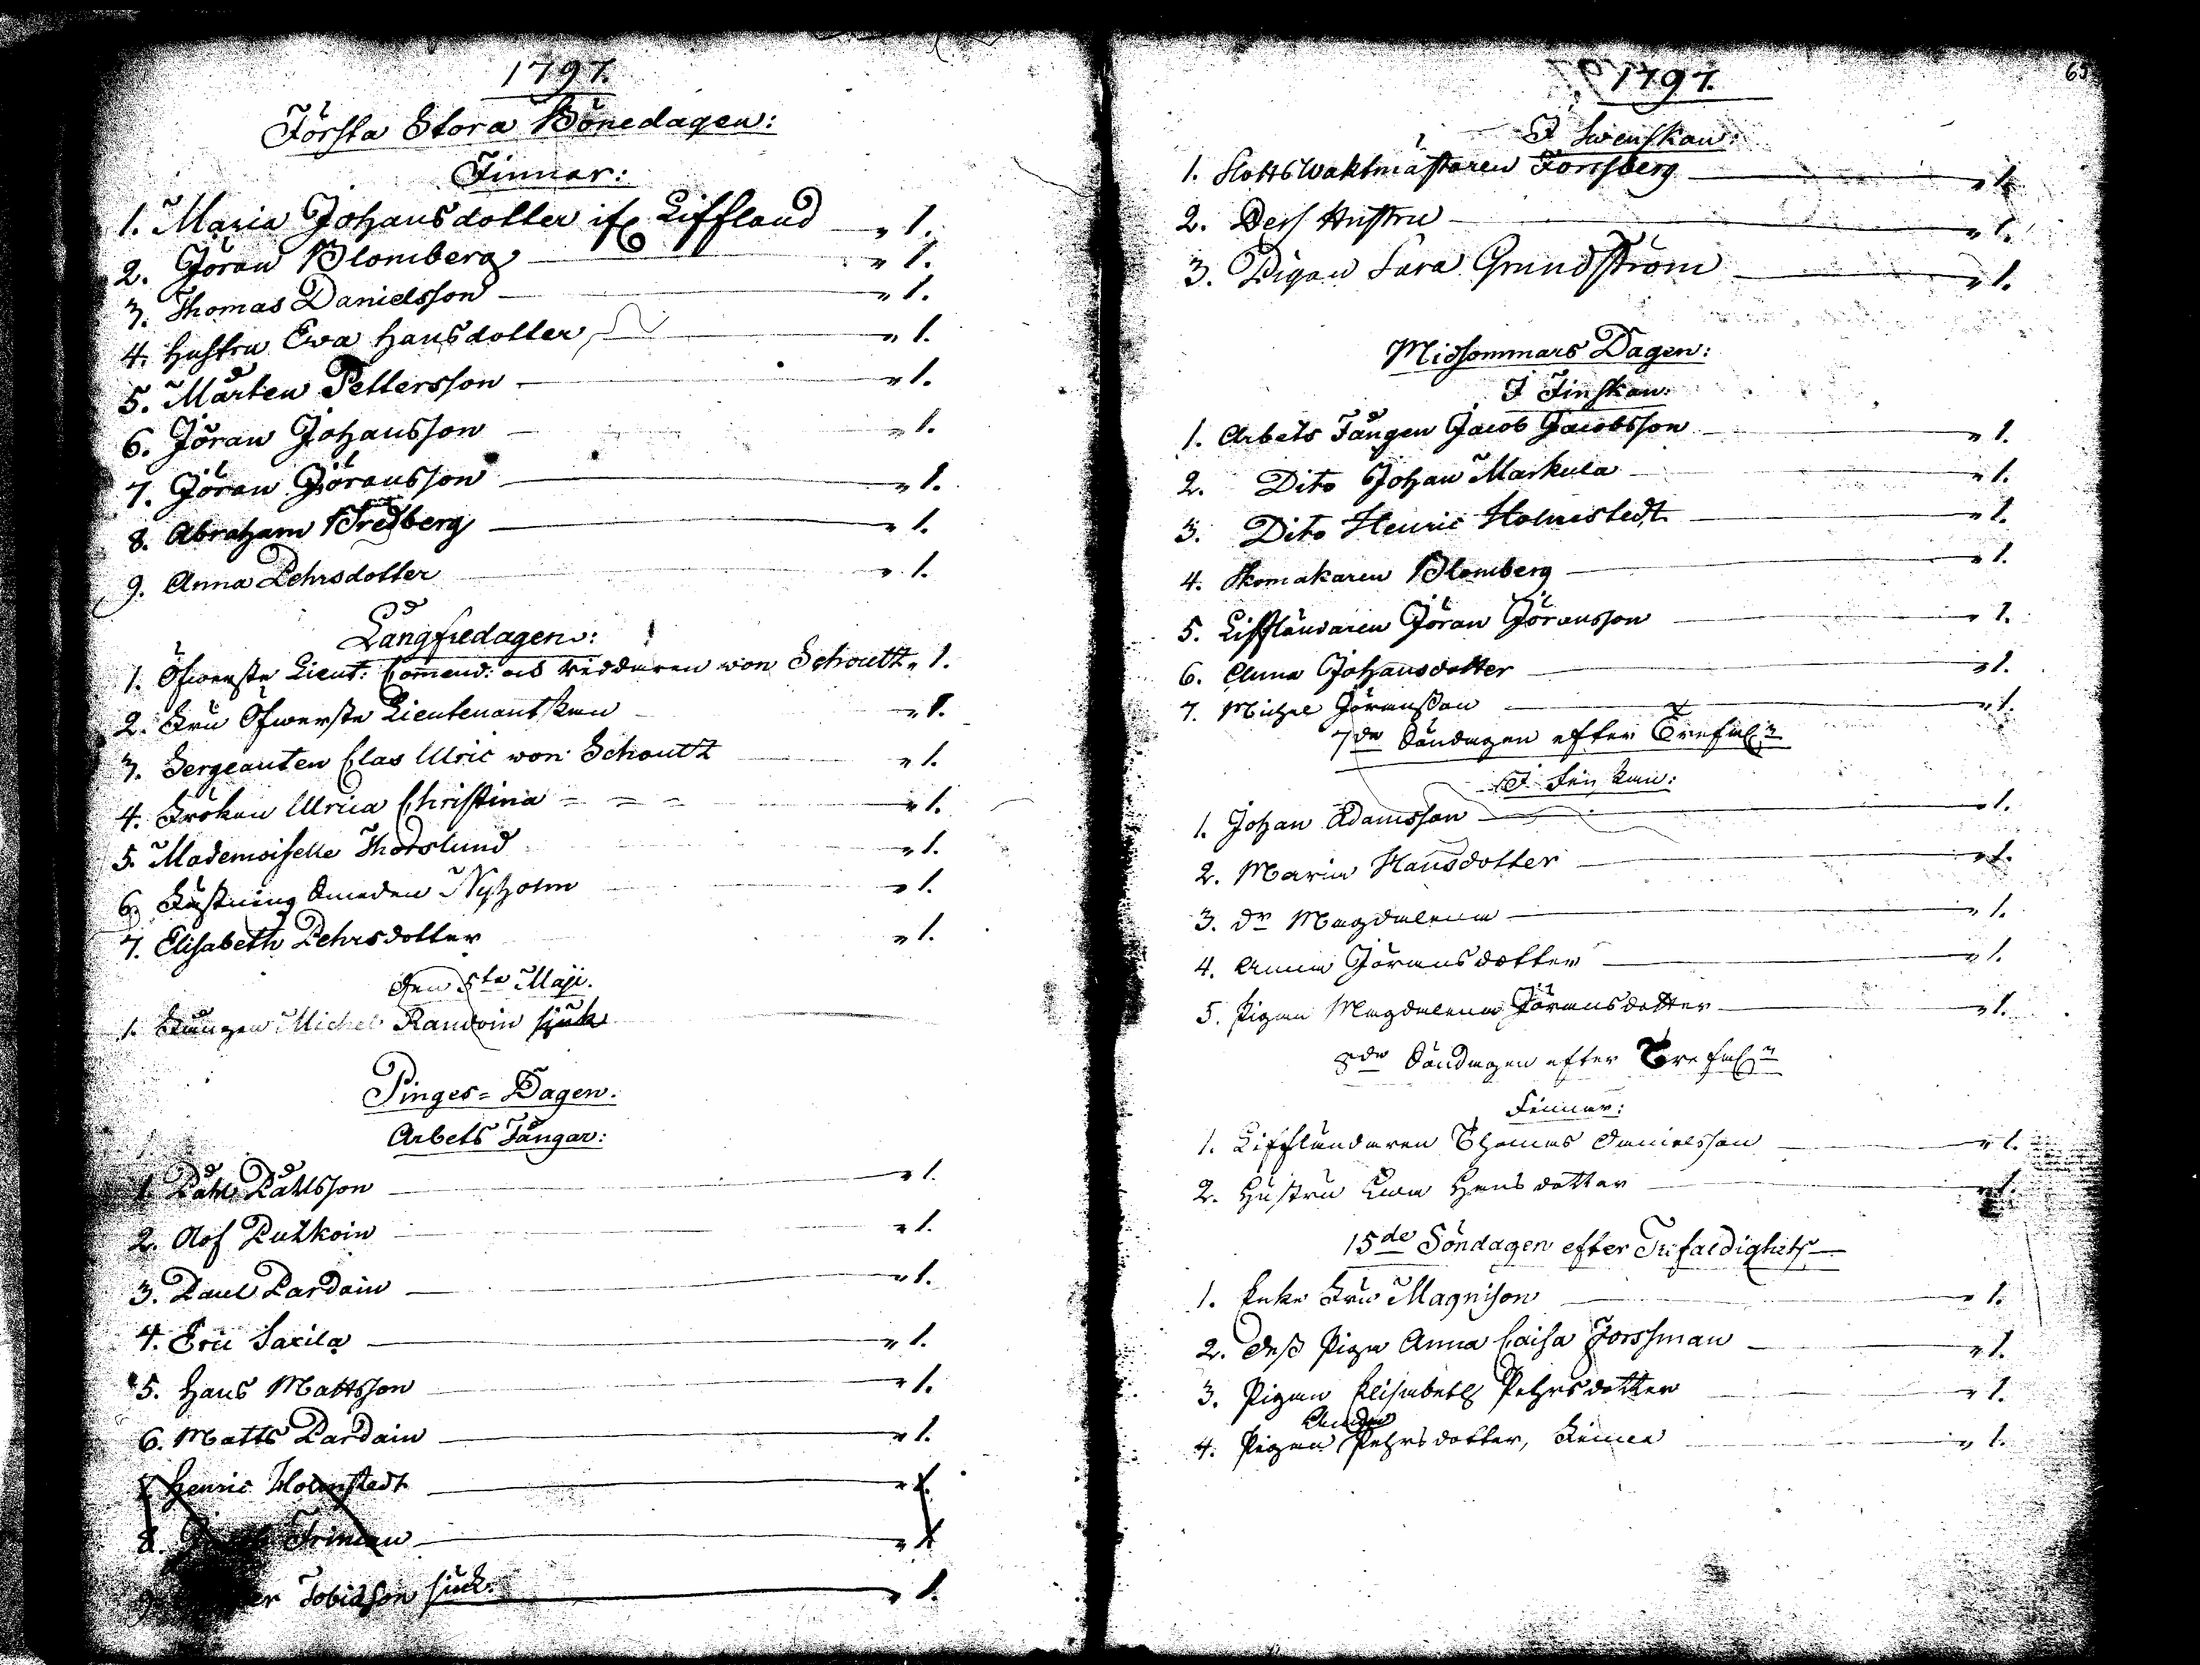 1797.
Första Stora Bönedagen:
Finnar:
1. Maria Johansdotter if Liffland „ 1.
2. Jöran Blomberg „ 1.
3. Thomas Danielsson „ 1.
4. Hustru Ewa Hansdotter „ 1.
5. Mårten Pettersson „ 1.
6. Jöran Johansson „ 1.
7. Jöran Jöransson „ 1.
8. Abraham Bredberg „ 1.
9. Anna Pehrsdotter „ 1.
Långfredagen:
1. Öfwerste Lieut: Com̄end: och Riddaren von Schoultz „ 1.
2. Fru Öfwerste Lieutenantskan „ 1.
3. Sergeanten Clas Ulric von Schoultz „ 1.
4. Fröken Ulrica Christina = = = „ 1.
5. Mademoiselle Thorslund „ 1.
6. Fästning Smeden Nyholm „ 1.
7. Elisabeth Pehrsdotter „ 1.
den 5te Maji.
1. Fången Michel sjuk
Pinges=Dagen.
Arbets Fångar:
1. Påhl Påhlsson „ 1.
2. Olof „ 1.
3. Paul Pardain „ 1.
4. Eric Saxila „ 1.
5. Hans Mattsson „ 1.
6. Matts Pardain „ 1.
Henric Holmstedt „ 1.
8. Friman „ 1.
9. Tobiasson sjuk. „ 1.
1797.
65
I Swenskan:
1. Slotts Waktmästaren Forssberg „ 1.
2. Dess Hustru „ 1.
3. Pigan Sara Grundström „ 1.
Midsommars Dagen:
I Finskan:
1. Arbets Fången Jacob Jacobsson „ 1.
2. Dito Johan Markula „ 1.
3. Dito Henric Holmstedt „ 1.
4. Skomakaren Blomberg „ 1.
5. Liffländaren Jöran Jöransson „ 1.
6. Anna Johansdotter „ 1.
7. Michel Jöransson „ 1.
7de Söndagen efter Trefal:
I Finskan:
1. Johan Adamsson „ 1.
2. Maria Hansdotter „ 1.
3. Do Magdalena „ 1.
4. Anna Jöransdotter „ 1.
5. Pigan Magdalena Jöransdotter „ 1.
8de Söndagen efter Trefal:
Finnar:
1. Liffländaren Thomas Danielsson „ 1.
2. Hustru Ewa Hansdotter „ 1.
15de Söndagen efter Trefaldighets
1. Enke Fru Magnison „ 1.
2. Dess Piga Anna Caisa Forssman „ 1.
3. Pigan Elisabeth Pehrsdotter „ 1.
4. Pigan Pehrsdotter, Finne „ 1.